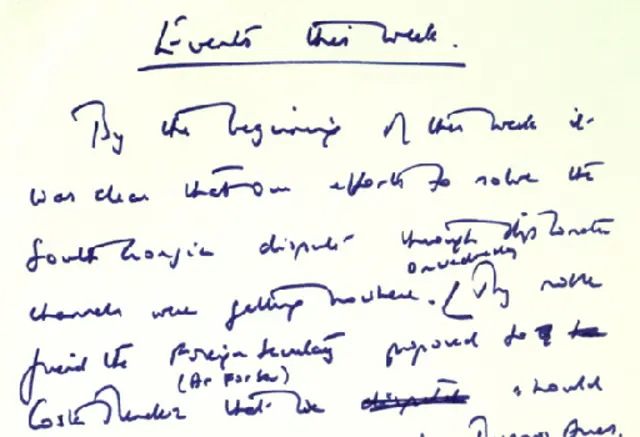 Events this week.
By the beginning of this week it
was clear that our efforts to solve the
South Georgia dispute through diplomatic
on Wednesday
channels were getting nowhere. [My noble
friend the Foreign Secretary proposed to
(Dr Forker)
Costa Mendez that we should
Buenos Aires.